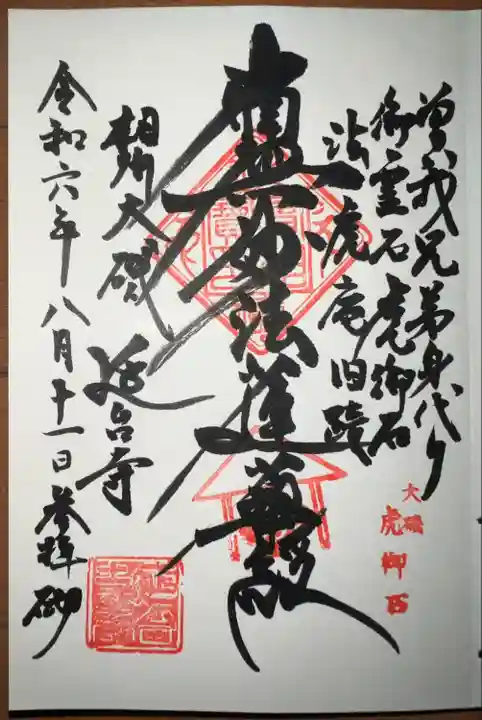 曽我兄弟身代り
御霊石虎御石
法虎庵旧蹟
南無妙法蓮華経
相州大磯 延台寺
令和六年八月十一日参拝
大磯
虎御石